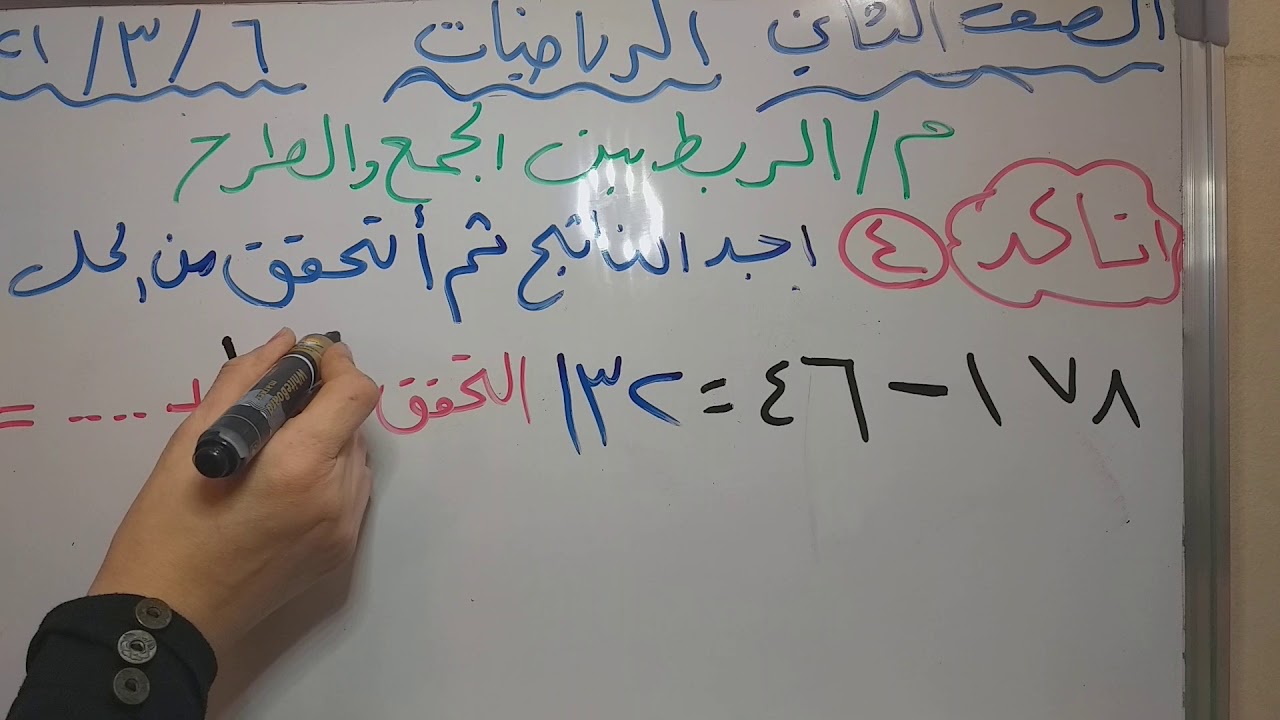 الصف الثاني الرياضيات ٦ / ٣ /
م / الربط بين الجمع والطرح
اتاكد ٤ اجد الناتج ثم أتحقق من الحل
١٧٨ - ٤٦ = ١٣٢ التحقق + .... =